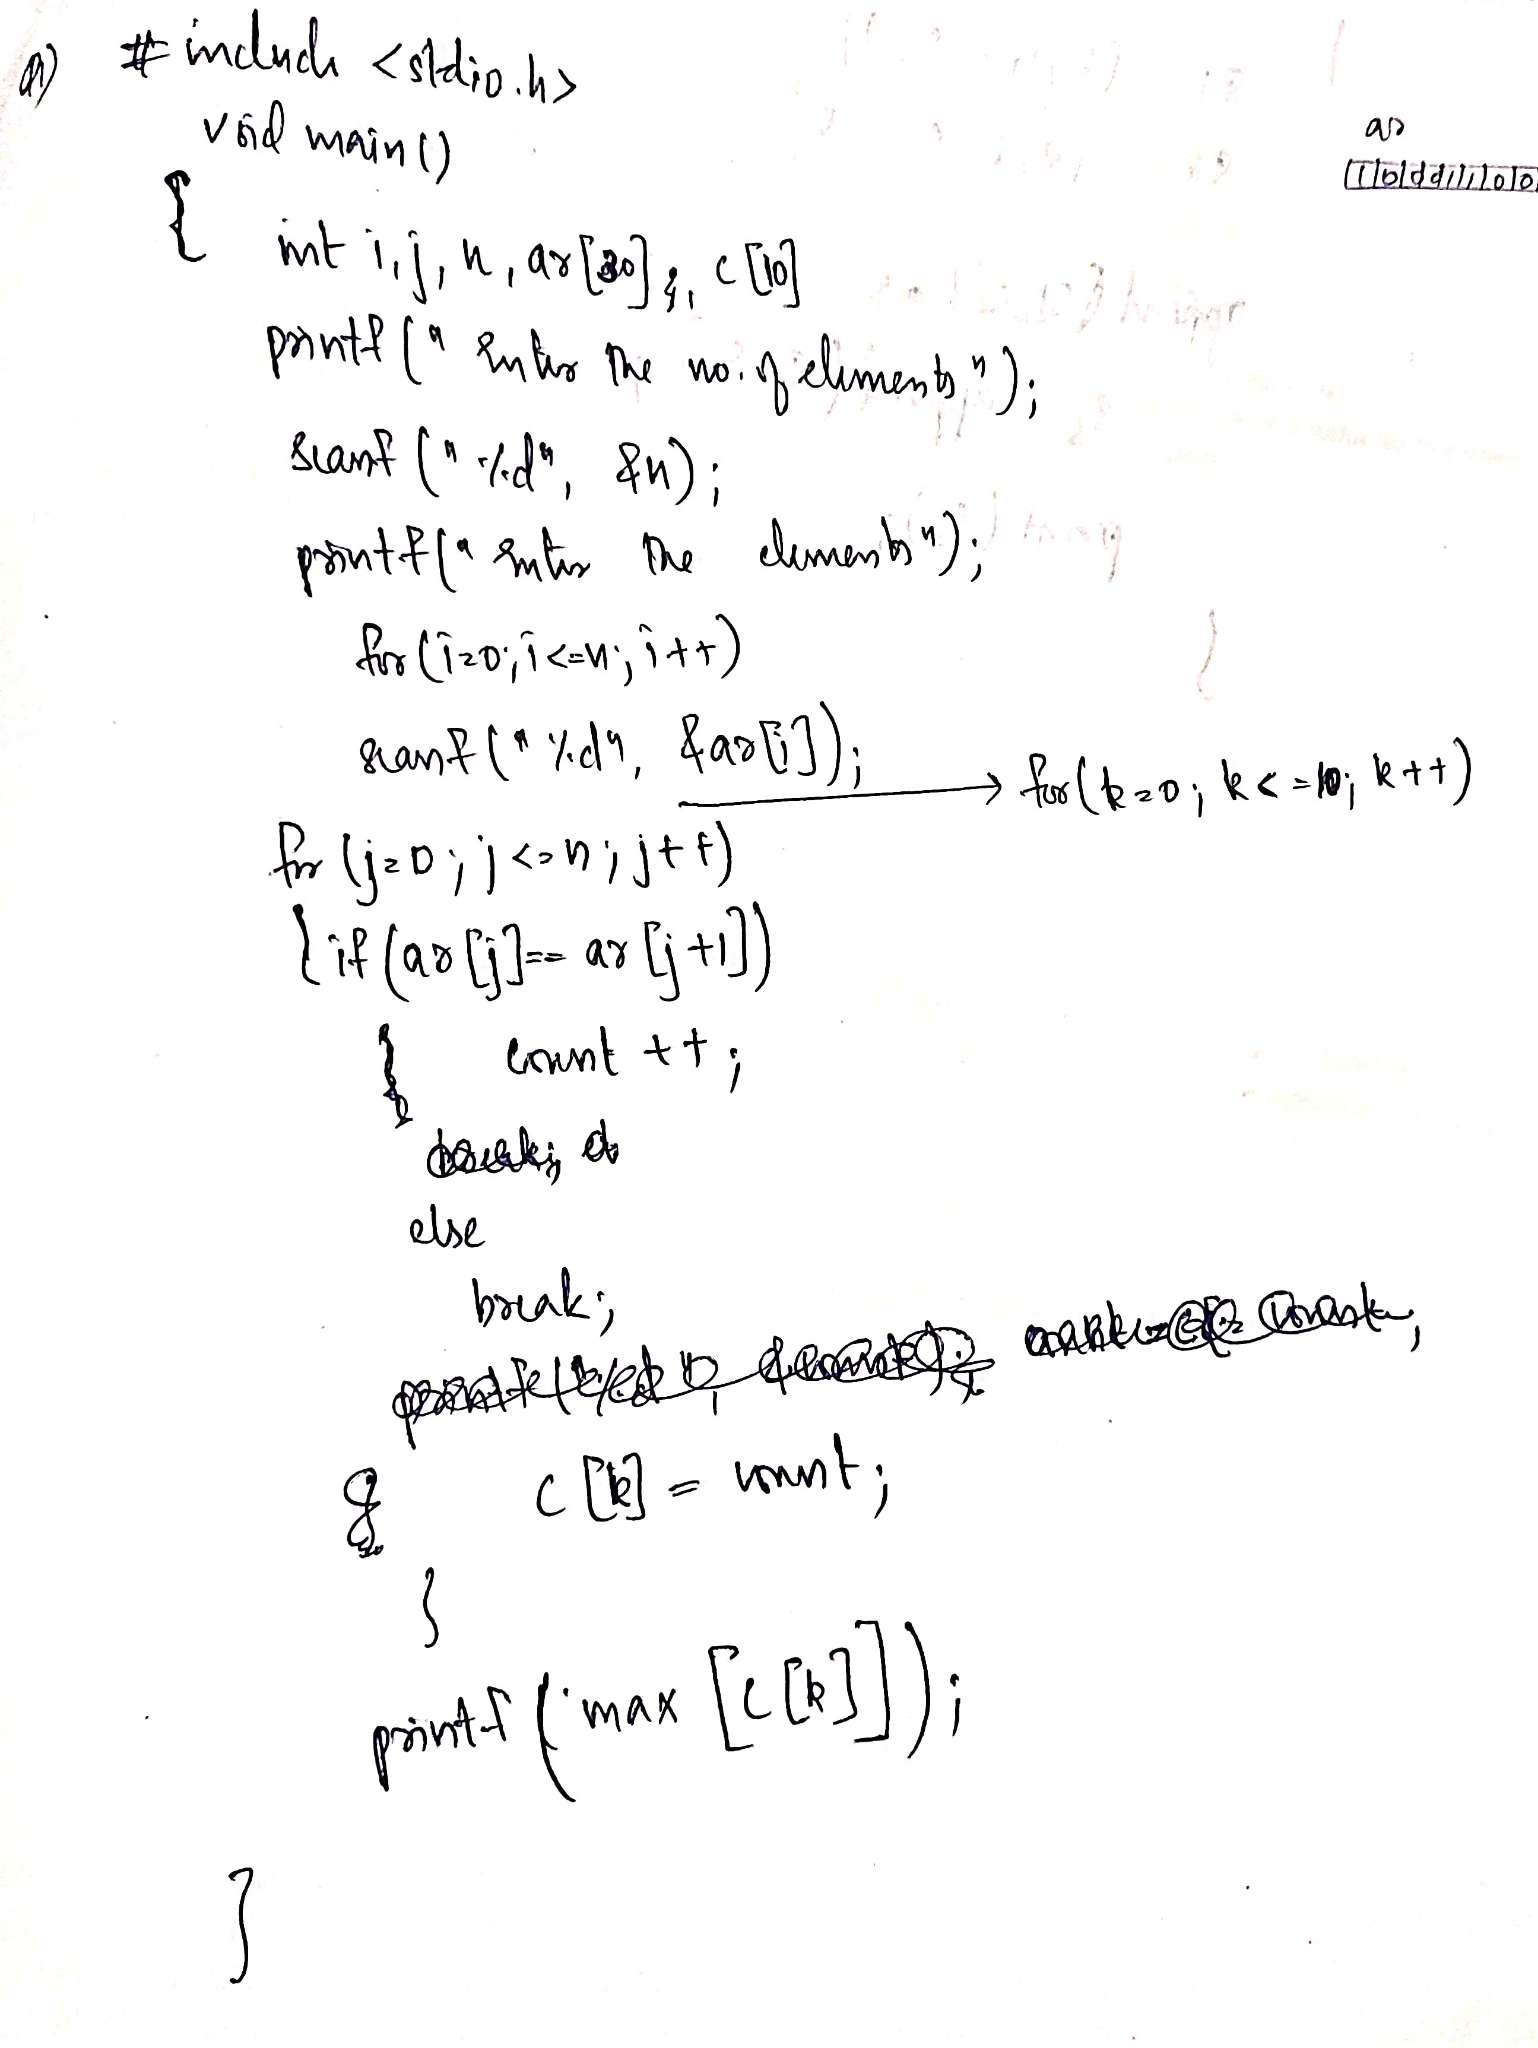 a) #include <stdio.h>
void main()
ar
{
int i,j,n,ar[30], c[10]
printf(" Enter the no. of elements");
scanf("%d", &n);
printf(" Enter the elements");
for(i=0;i<=n;i++)
scanf("%d", &ar[i]);
→ for(k=0; k<=10; k++)
for (j=0; j<=n; j++)
{ if (ar[j]== ar[j+1])
{ count ++;
else
break;
c[k] = count;
}
printf( max [c[k]]);
}